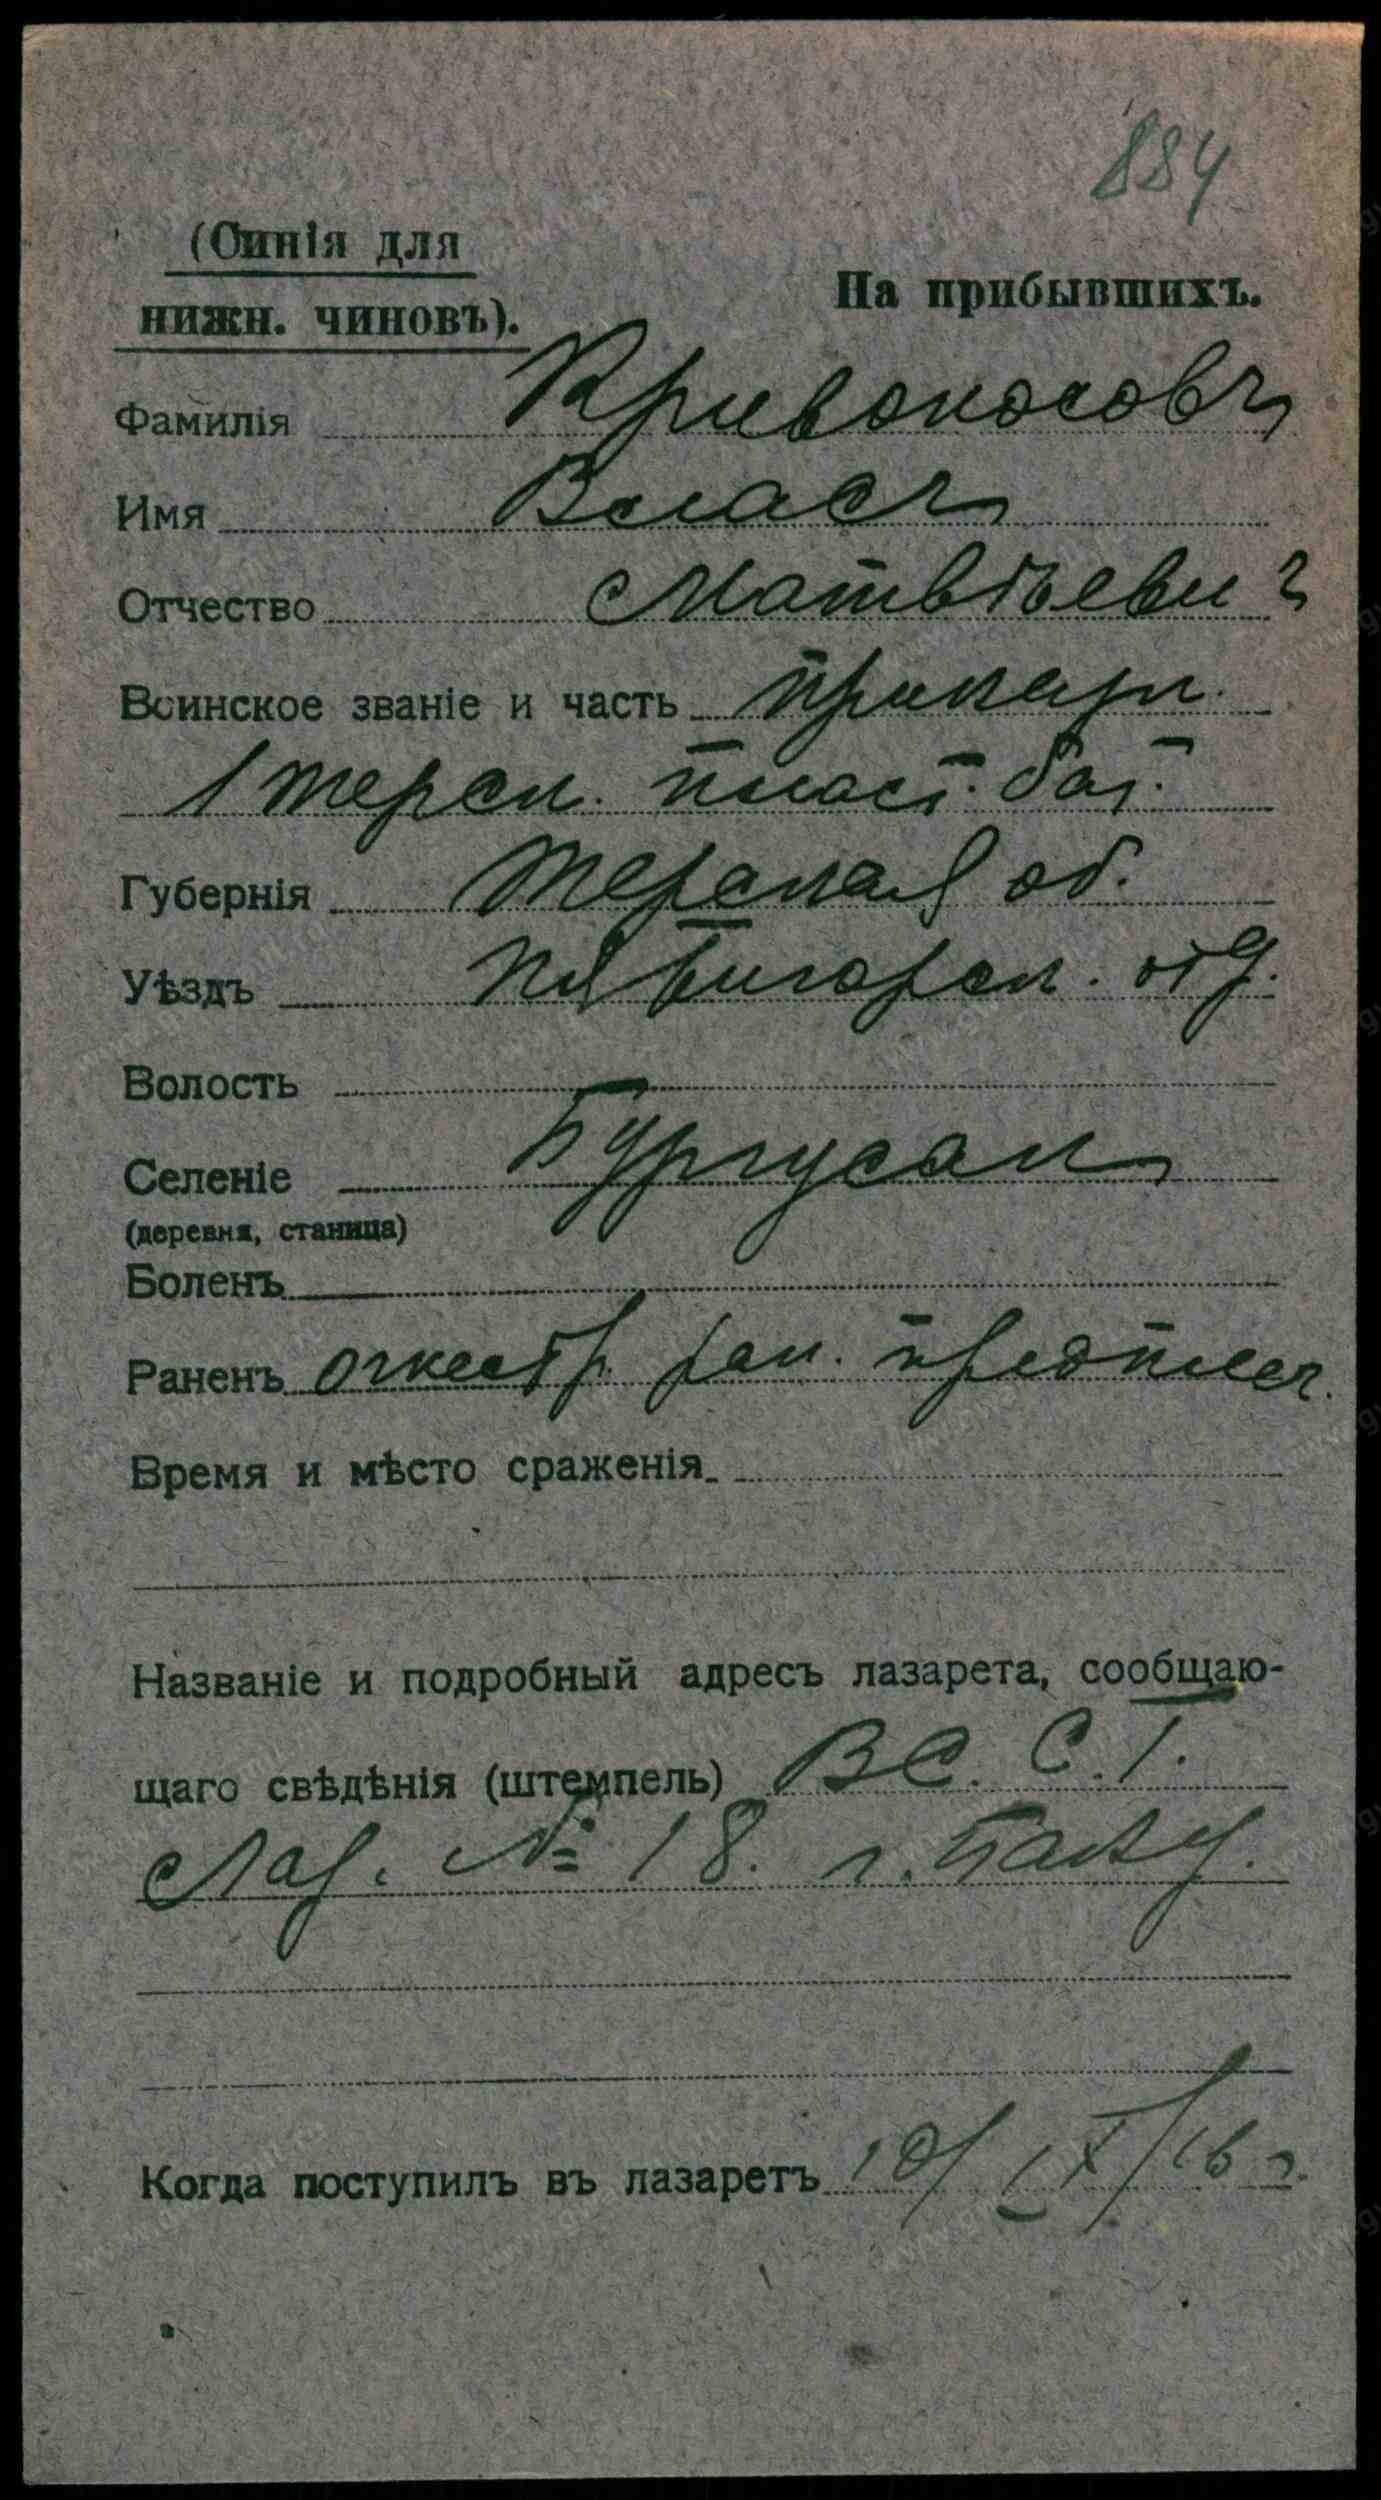 884
(Синія для
нижн. чиновъ).
На прибывшихъ.
Фамилія Кривоносовъ
Имя Власъ
Отчество Матвѣевич
Воинское званіе и часть приказн.
1 терск. пласт. бат.
Губернія Терская об.
Уѣздъ Пятигорск. отд.
Волость
Селеніе Бургусанъ
(деревня, станица)
Боленъ
Раненъ огнестр. ран. предплеч.
Время и мѣсто сраженія
Названіе и подробный адресъ лазарета, сообщаю-
щаго свѣдѣнія (штемпель) В С. С. Г.
Лаз. № 18. г. Баку.
Когда поступилъ въ лазаретъ 10/IX/16 г.